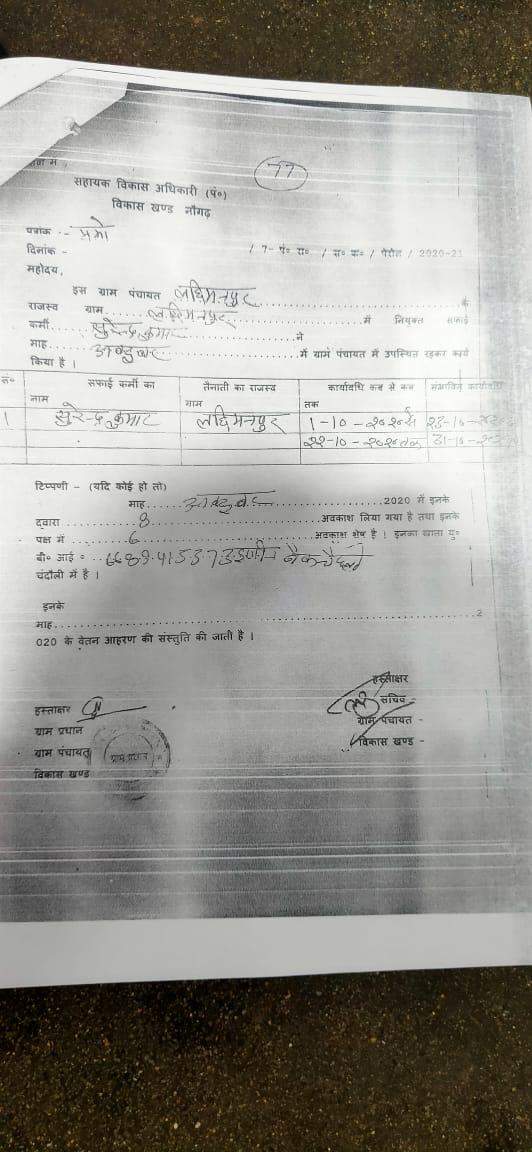 77
सहायक विकास अधिकारी (पं०)
विकास खण्ड नौगढ़
पत्रांक :-
दिनांक - / 7- पं० रा० / स० क० / पेरोल / 2020-21
महोदय,
इस ग्राम पंचायत लछिमनपुर के
राजस्व ग्राम लछिमनपुर में नियुक्त सफाई
कर्मी सुरेन्द्र कुमार ने
माह अक्टूबर में ग्राम पंचायत में उपस्थित रहकर कार्य
किया है ।
सं० सफाई कर्मी का नाम तैनाती का राजस्व ग्राम कार्यावधि कब से कब तक
1 सुरेन्द्र कुमार लछिमनपुर 1-10-२०२० से 23-10-
२२-10-२०२० तक 31-10-
टिप्पणी - (यदि कोई हो तो)
माह अक्टूबर 2020 में इनके
द्वारा 8 अवकाश लिया गया है तथा इनके
पक्ष में 6 अवकाश शेष है । इनका खाता यू०
बी० आई ०
चंदौली में है ।
इनके
माह 2
020 के वेतन आहरण की संस्तुति की जाती है ।
हस्ताक्षर
हस्ताक्षर
सचिव -
ग्राम प्रधान
ग्राम पंचायत -
ग्राम पंचायत
विकास खण्ड -
विकास खण्ड